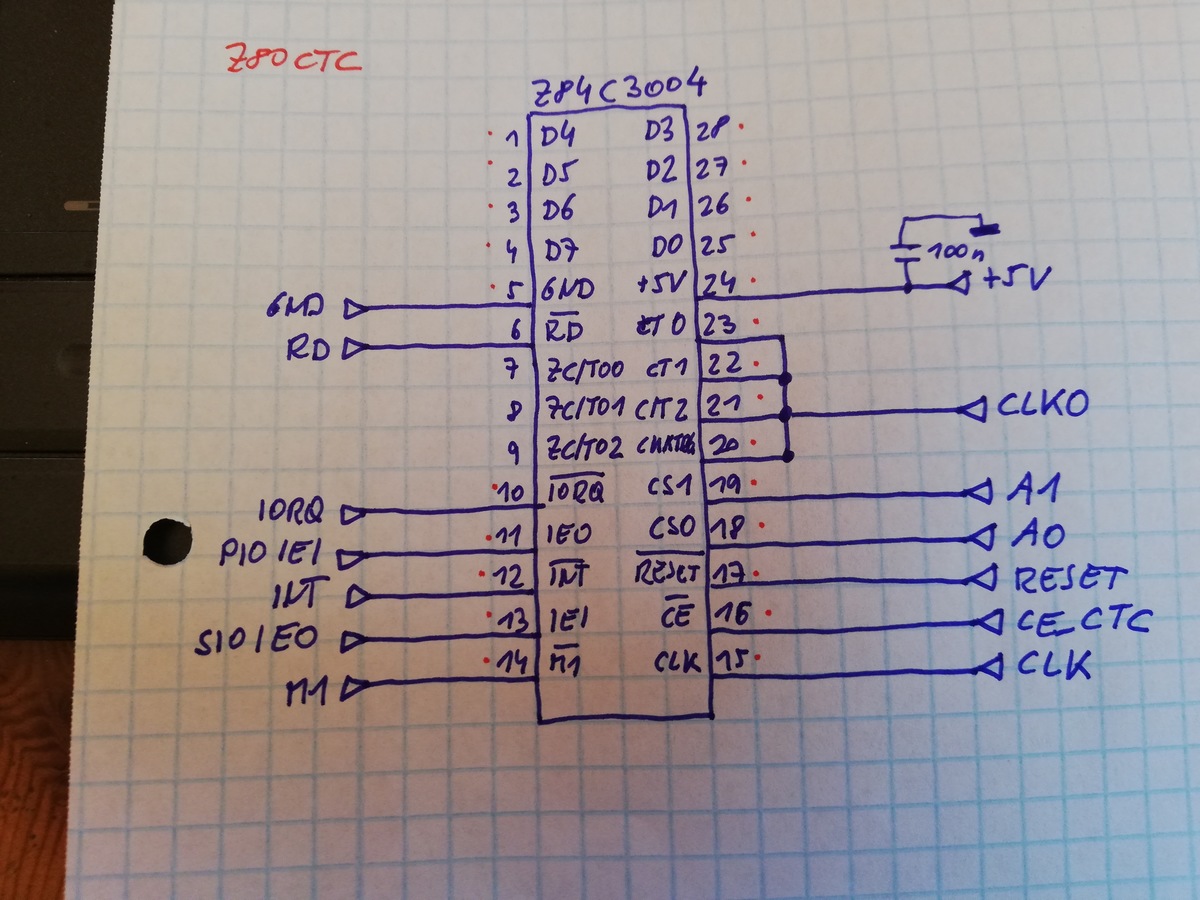 Z80 CTC
Z84C3004
1 D4 D3 28
2 D5 D2 27
3 D6 D1 26
4 D7 D0 25
100n
GND 5 GND +5V 24 +5V
RD 6 RD CT0 23
7 ZC/TO0 CT1 22
8 ZC/TO1 C/T2 21 CLK0
9 ZC/TO2 20
IORQ 10 IORQ CS1 19 A1
PIO IEI 11 IEO CS0 18 A0
INT 12 INT RESET 17 RESET
SIO IEO 13 IEI CE 16 CE_CTC
M1 14 M1 CLK 15 CLK